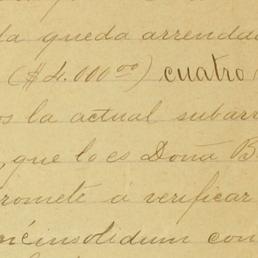 da queda arrendad
($4.000⁰⁰) cuatro
os la actual subarr
, que lo es Doña B
romete á verificar
insolidum con